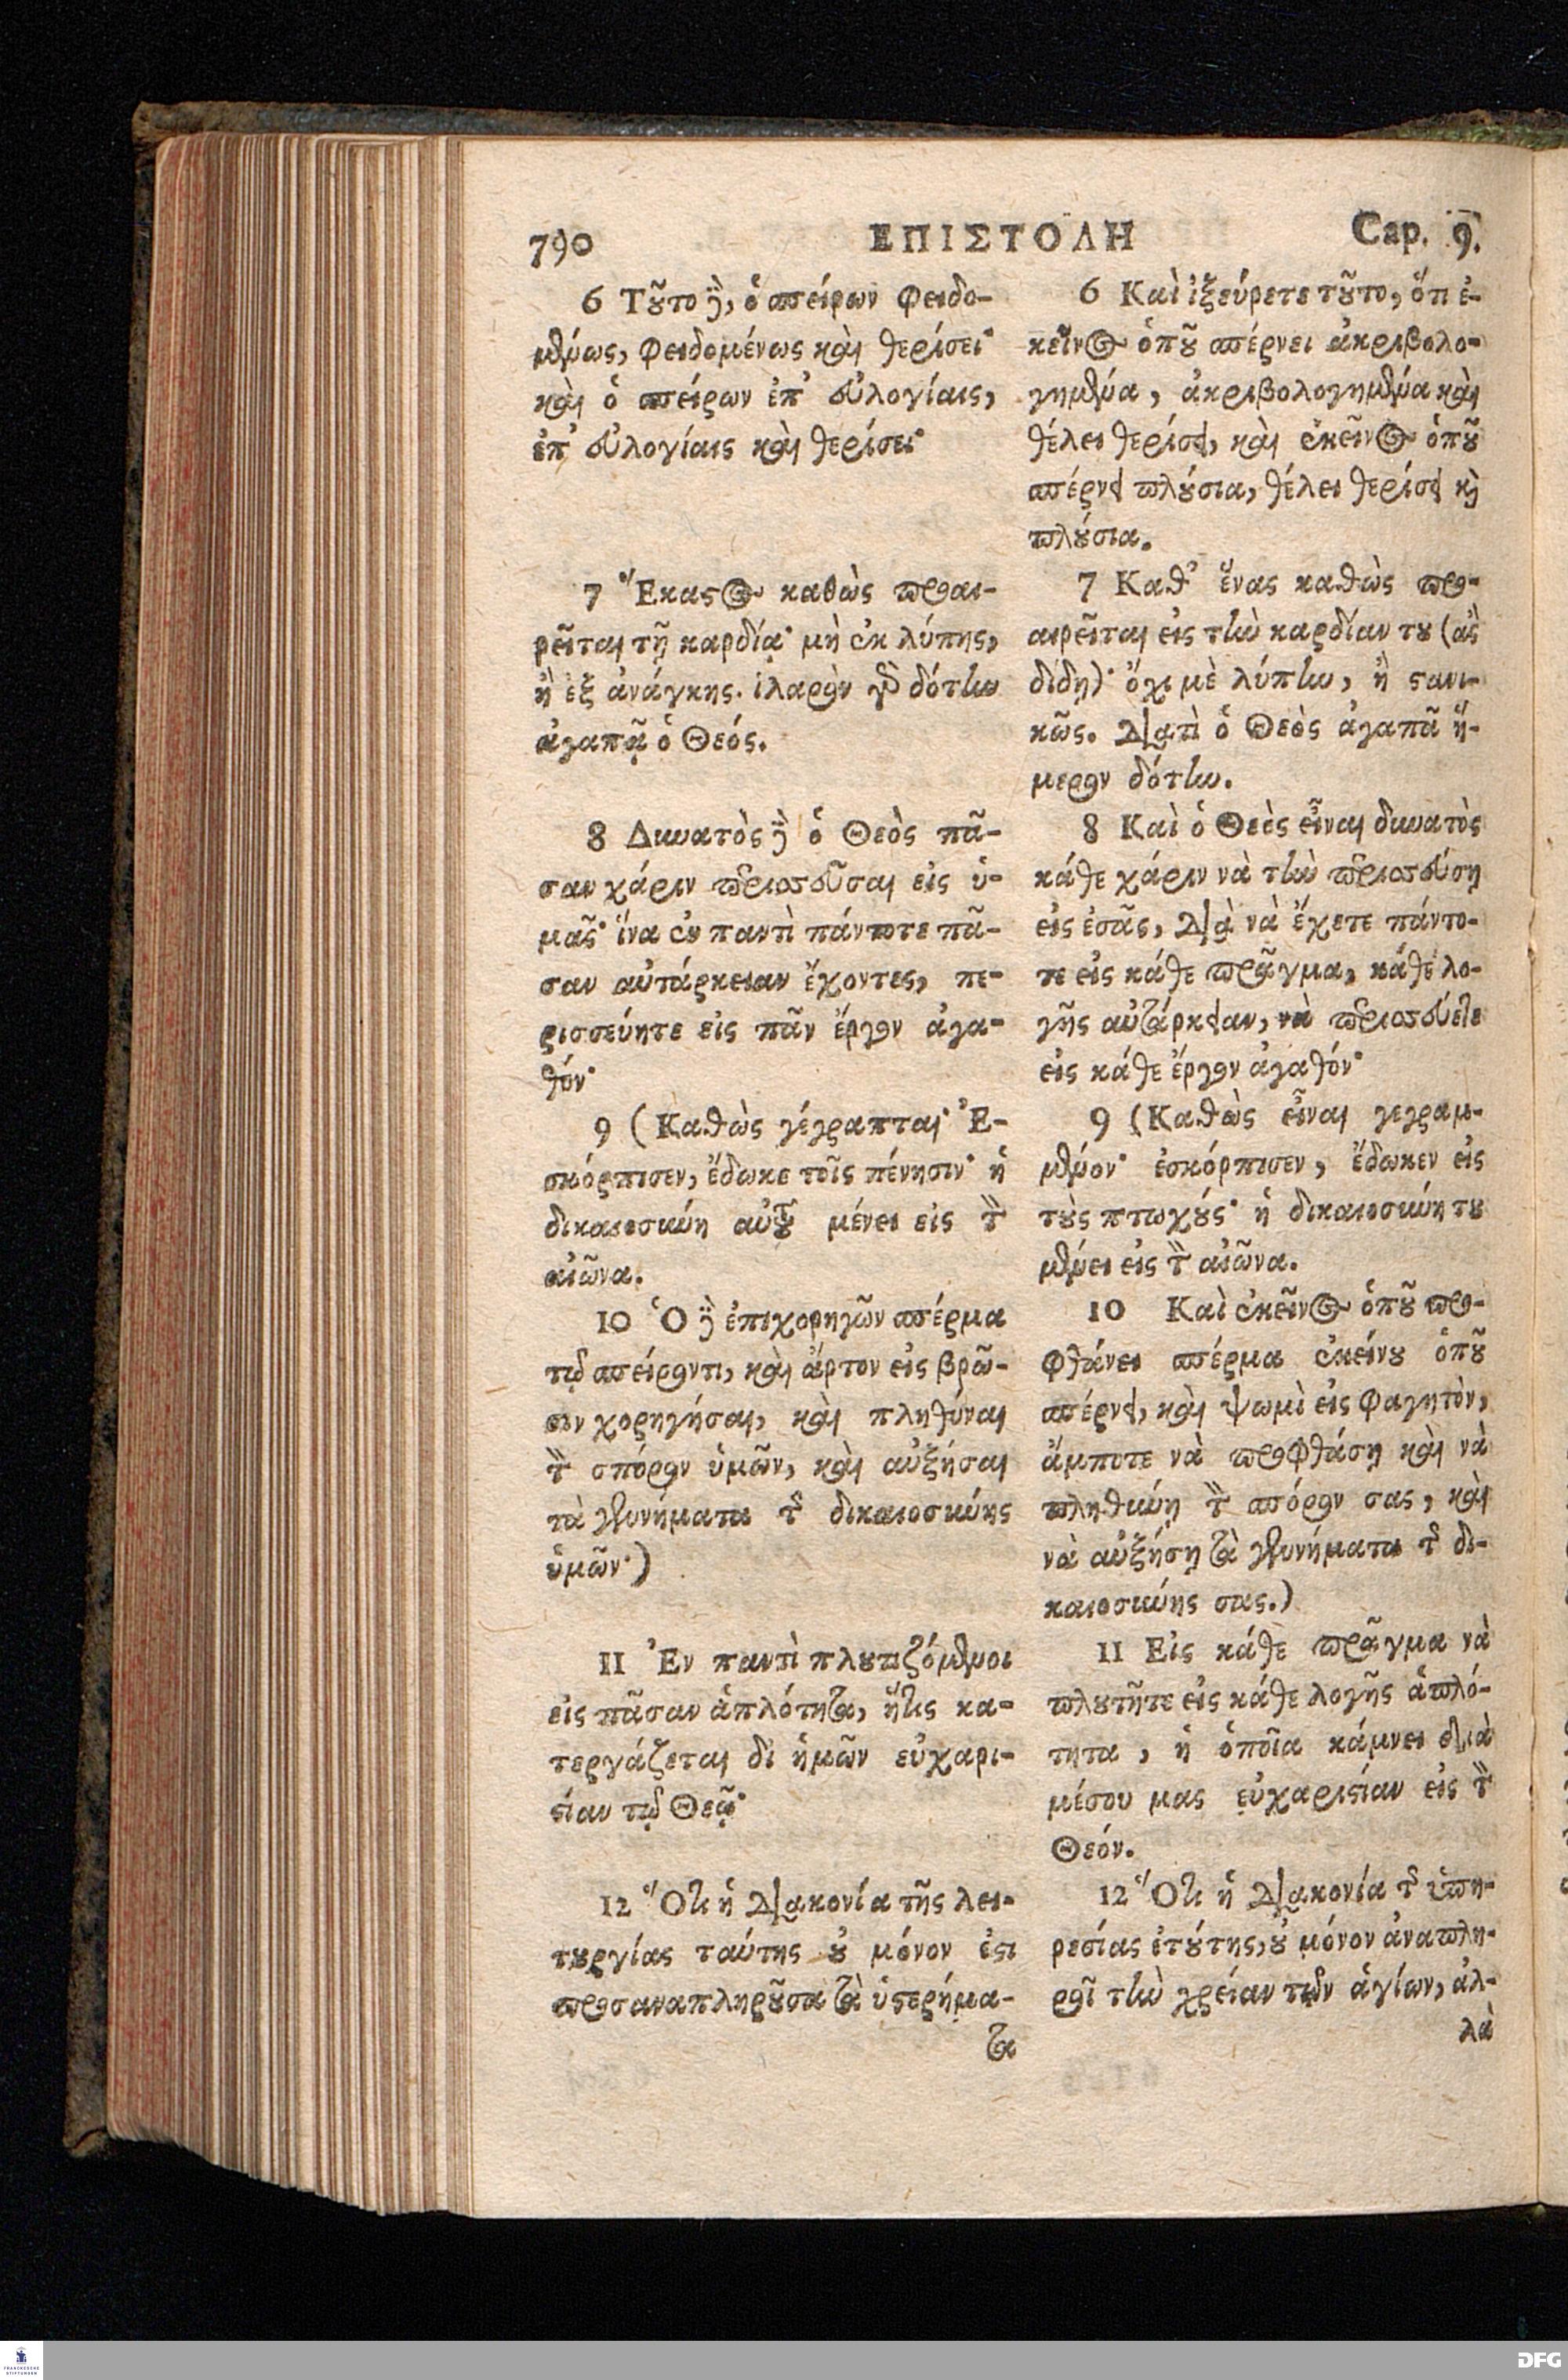 790 ΕΠΙΣΤΟΛΗ Cap. 9.
6 Τȣ͂το δὲ, ὁ σπείρων φειδο-
μένως, φειδομένως καὶ θερίσει·
καὶ ὁ σπείρων ἐπ' εὐλογίαις,
ἐπ' εὐλογίαις καὶ θερίσει·
7 Ἕκαϛος καθὼς προαι-
ρεῖται τῇ καρδίᾳ· μὴ ἐκ λύπης,
ἢ ἐξ ἀνάγκης. ἱλαρὸν γὰρ δότην
ἀγαπᾷ ὁ Θεός.
8 Δυνατὸς δὲ ὁ Θεὸς πᾶ-
σαν χάριν περισσεῦσαι εἰς ὑ-
μᾶς· ἵνα ἐν παντὶ πάντοτε πᾶ-
σαν αὐτάρκειαν ἔχοντες, πε-
ρισσεύητε εἰς πᾶν ἔργον ἀγα-
θόν·
9 (Καθὼς γέγραπται· Ἐ-
σκόρπισεν, ἔδωκε τοῖς πένησιν· ἡ
δικαιοσύνη αὐτȣ͂ μένει εἰς τὸν
αἰῶνα.
10 Ὁ δὲ ἐπιχορηγῶν σπέρμα
τῷ σπείροντι, καὶ ἄρτον εἰς βρῶ-
σιν χορηγήσαι, καὶ πληθύναι
τὸν σπόρον ὑμῶν, καὶ αὐξήσαι
τὰ γεννήματα τῆς δικαιοσύνης
ὑμῶν·)
11 Ἐν παντὶ πλȣτιζόμενοι
εἰς πᾶσαν ἁπλότητα, ἥτις κα-
τεργάζεται δι ἡμῶν εὐχαρι-
ϛίαν τῷ Θεῷ·
12 Ὅτι ἡ διακονία τῆς λει-
τȣργίας ταύτης ȣ̓ μόνον ἐϛὶ
προσαναπληρȣ͂σα τὰ ὑϛερήμα-
τα
6 Καὶ ἰξεύρετε τȣ͂το, ὅτι ἐ-
κεῖνος ὁπȣ͂ σπέρνει ἀκριβολο-
γημένα, ἀκριβολογημένα καὶ
θέλει θερίσει, καὶ ἐκεῖνος ὁπȣ͂
σπέρνει πλȣ́σια, θέλει θερίσει κὶ
πλȣ́σια.
7 Καθ' ἕνας καθὼς προ-
αιρεῖται εἰς τὴν καρδίαν τȣ (ἂς
δίδῃ)· ὄχι μὲ λύπην, ἢ ϛανι-
κῶς. Διατὶ ὁ Θεὸς ἀγαπᾶ ἥ-
μερον δότην.
8 Καὶ ὁ Θεὸς εἶναι δυνατὸς
κάθε χάριν νὰ τὴν περισσεύσῃ
εἰς ἐσᾶς, διὰ νὰ ἔχετε πάντο-
τε εἰς κάθε πρᾶγμα, κάθε λο-
γῆς αὐτάρκειαν, νὰ περισσεύετε
εἰς κάθε ἔργον ἀγαθόν·
9 (Καθὼς εἶναι γεγραμ-
μένον· ἐσκόρπισεν, ἔδωκεν εἰς
τȣ̀ς πτωχȣ́ς· ἡ δικαιοσύνη τȣ
μένει εἰς τὸν αἰῶνα.
10 Καὶ ἐκεῖνος ὁπȣ͂ προ-
φθάνει σπέρμα ἐκείνȣ ὁπȣ͂
σπέρνει, καὶ ψωμὶ εἰς φαγητὸν,
ἄμποτε νὰ προφθάσῃ καὶ νὰ
πληθύνῃ τὸν σπόρον σας, καὶ
νὰ αὐξήσῃ τὰ γεννήματα τῆς δι-
καιοσύνης σας.)
11 Εἰς κάθε πρᾶγμα νὰ
πλȣτῆτε εἰς κάθε λογῆς ἁπλό-
τητα, ἡ ὁποῖα κάμνει διὰ
μέσου μας εὐχαριϛίαν εἰς τὸν
Θεόν.
12 Ὅτι ἡ διακονία τῆς ὑπη-
ρεσίας ἐτȣ́της, ȣ̓ μόνον ἀναπλη-
ροῖ τὴν χρείαν τῶν ἁγίων, ἀλ-
λὰ
FRANCKESCHE
STIFTUNGEN
DFG